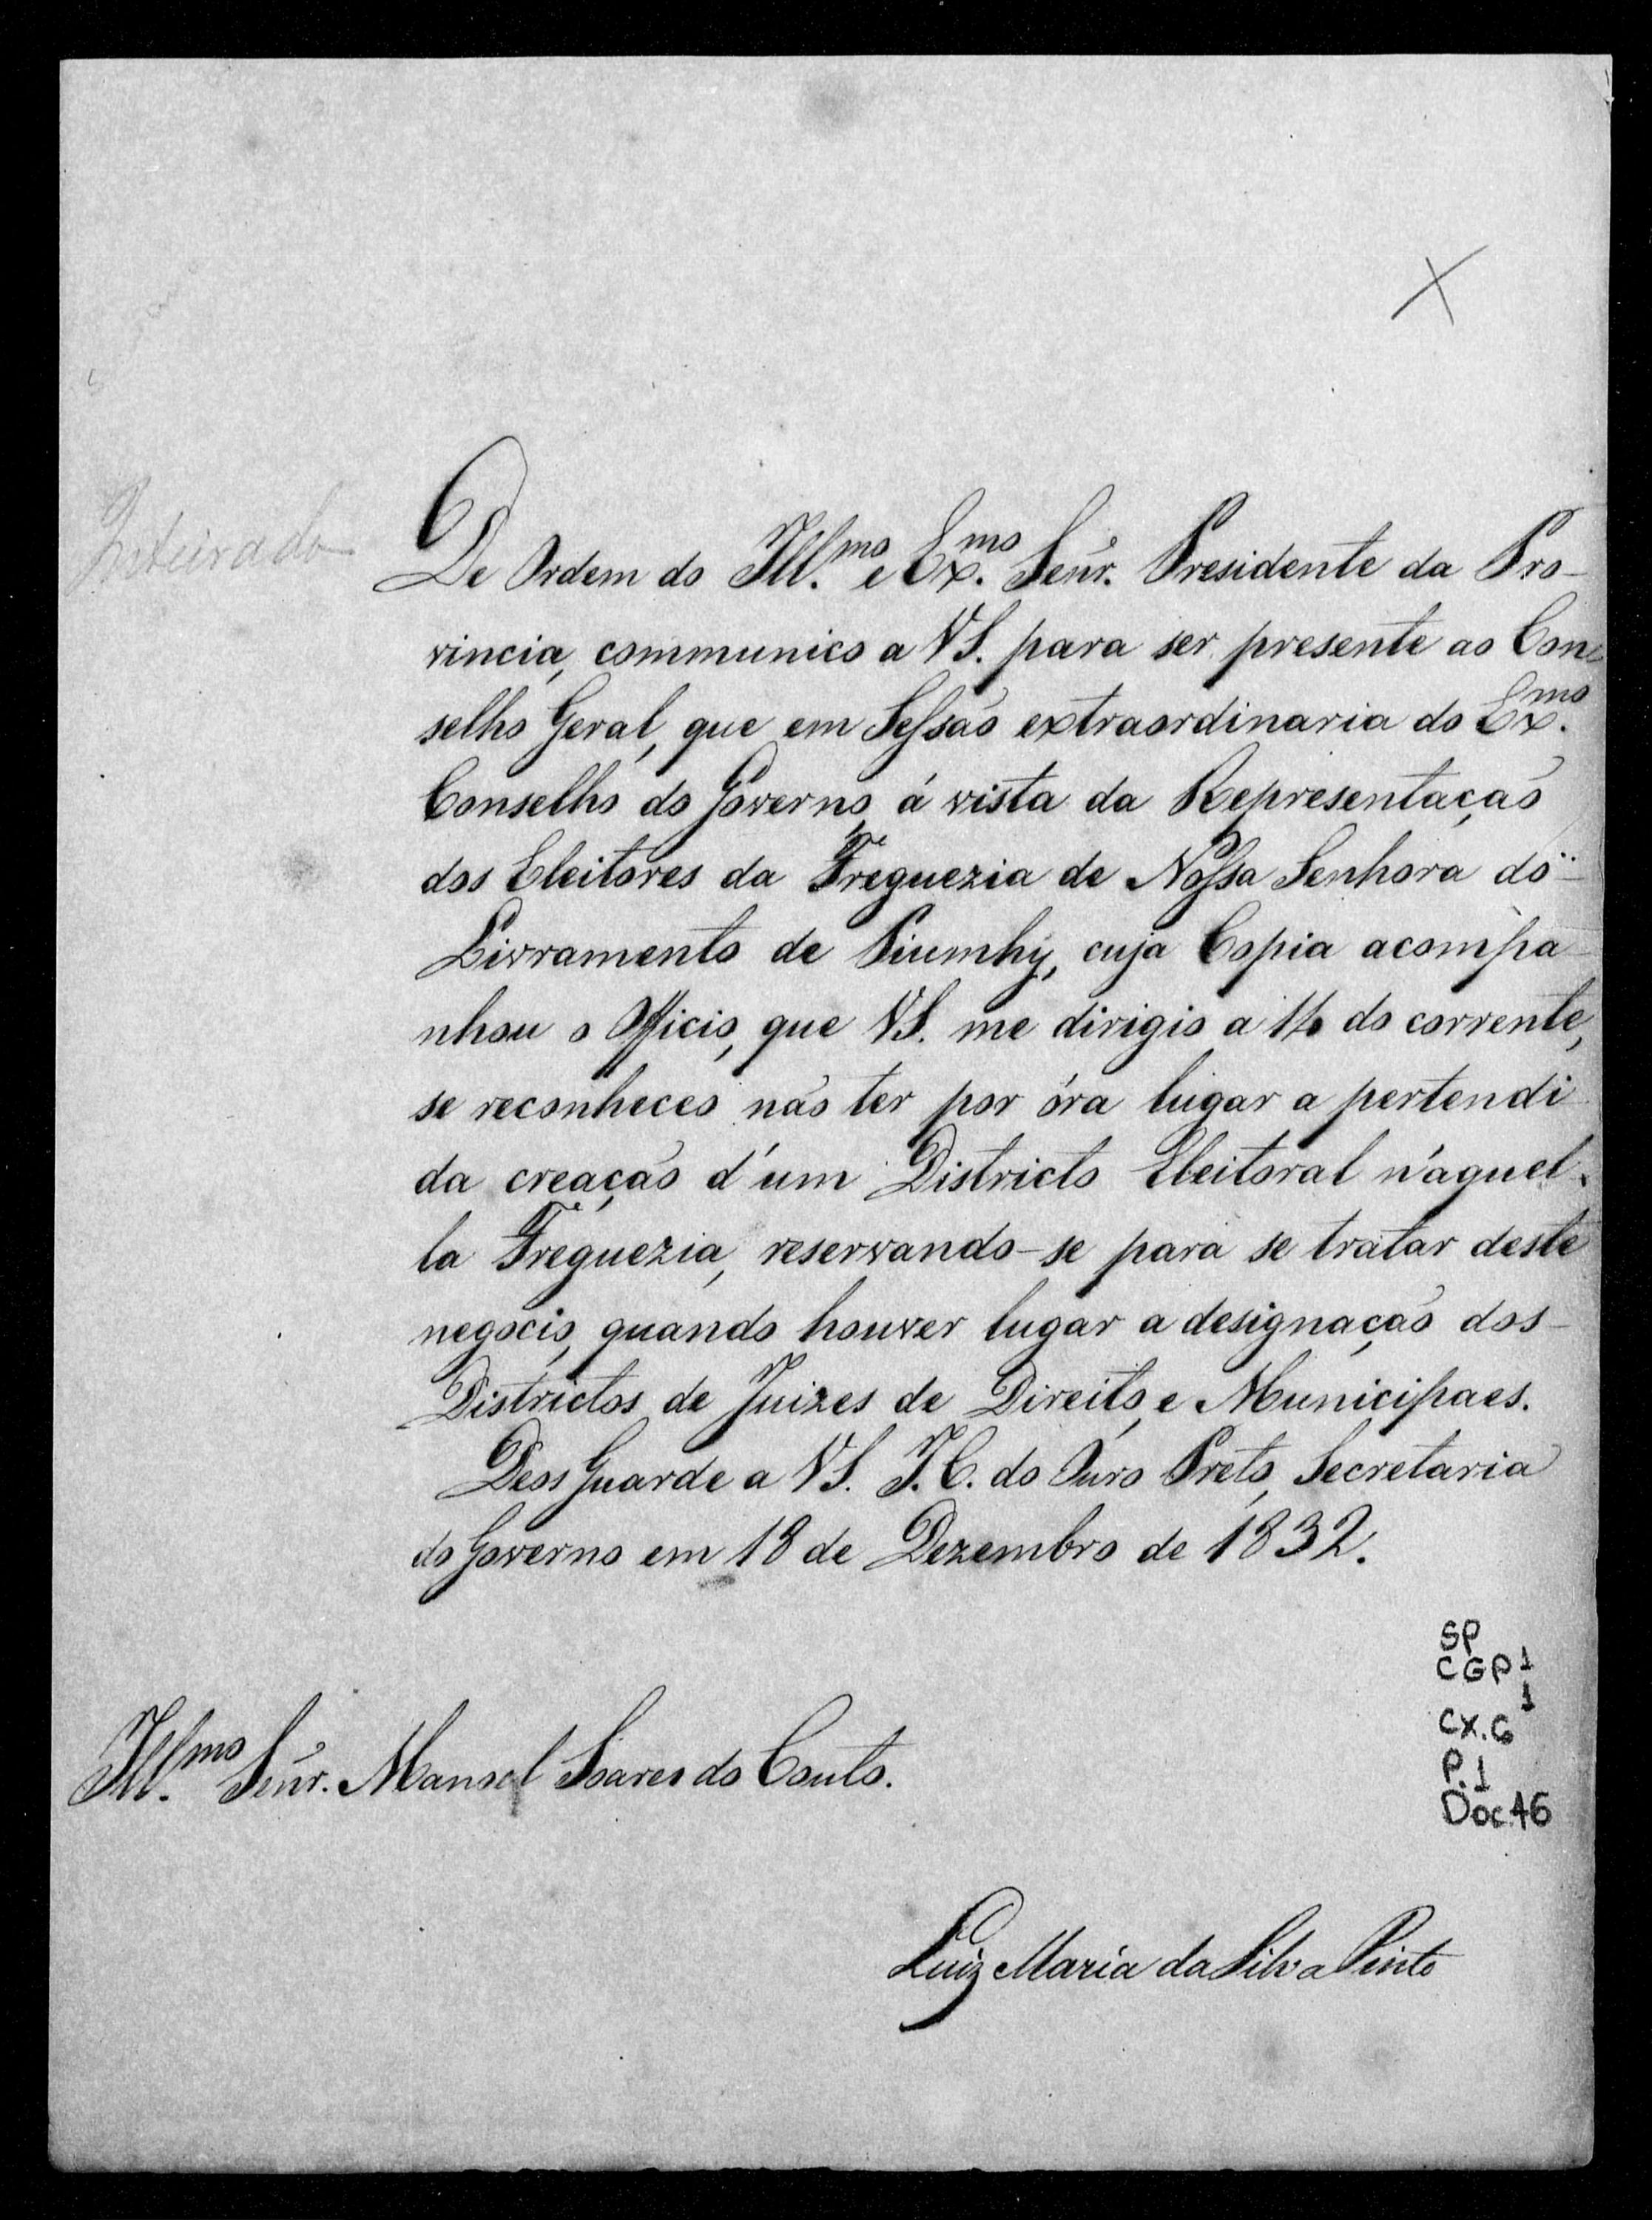 Inteirado
De Ordem do Ill.mo e Ex.mo Senr. Presidente da Pro-
vincia, communico a VS. para ser presente ao Con-
selho Geral, que em Sessaõ extraordinaria do Ex.mo
Conselho do Governo, á vista da Representaçaõ
dos Eleitores da Freguezia de Nossa Senhora do
Livramento de Piumhy, cuja Copia acompa-
nhou o Officio, que VS. me dirigio a 14 do corrente,
se reconheceo naõ ter por óra lugar a pertendi
da creaçaõ d'um Districto Eleitoral n'aquel-
la Freguezia, reservando-se para se tratar deste
negocio, quando houver lugar a designaçaõ dos
Districtos de Juizes de Direito, e Municipaes.
Deos Guarde a VS. I.C. do Ouro Preto, Secretaria
do Governo em 18 de Dezembro de 1832.
SP
CGP 1
CX. 6
P. 1
Doc. 46
Ill.mo Senr. Manoel Soares do Couto.
Luiz Maria da Silva Pinto